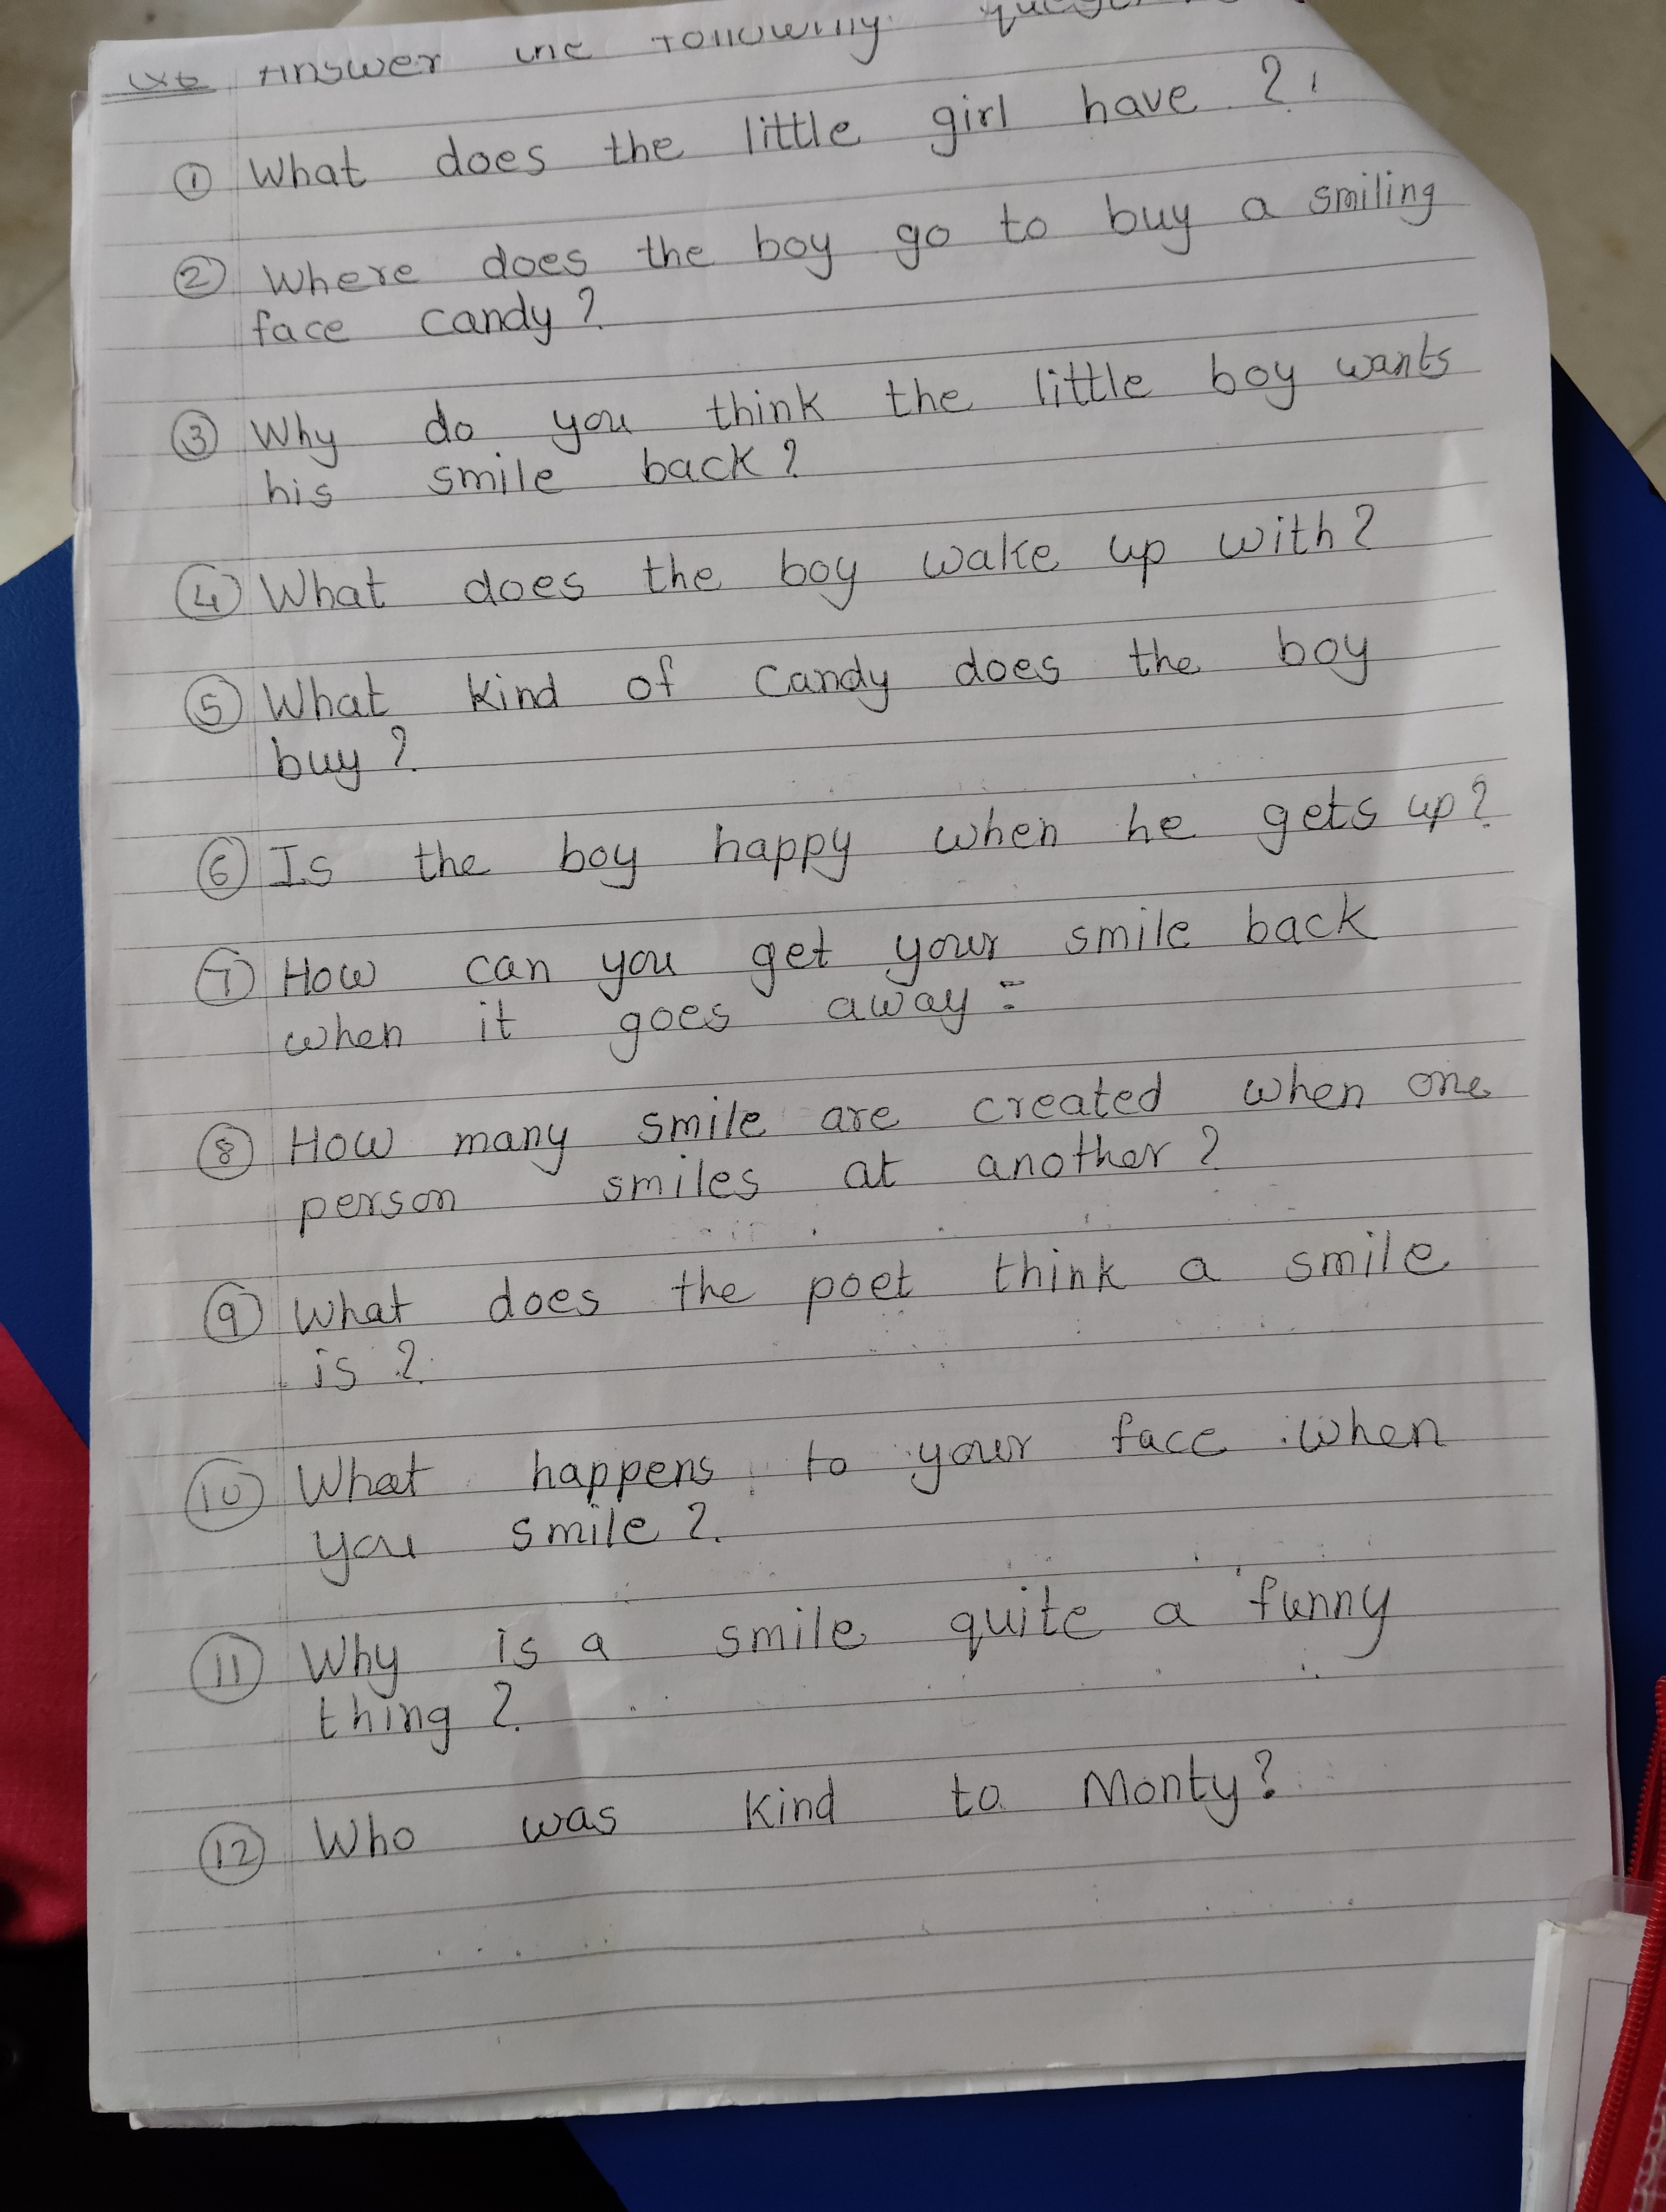 Answer the following
① What does the little girl have ?
② Where does the boy go to buy a smiling
face candy ?
③ Why do you think the little boy wants
his smile back ?
④ What does the boy wake up with ?
⑤ What kind of candy does the boy
buy ?
⑥ Is the boy happy when he gets up ?
⑦ How can you get your smile back
when it goes away :
⑧ How many smile are created when one
person smiles at another ?
⑨ What does the poet think a smile
is ?
⑩ What happens to your face when
you smile ?
⑪ Why is a smile quite a funny
thing ?
⑫ Who was kind to Monty ?